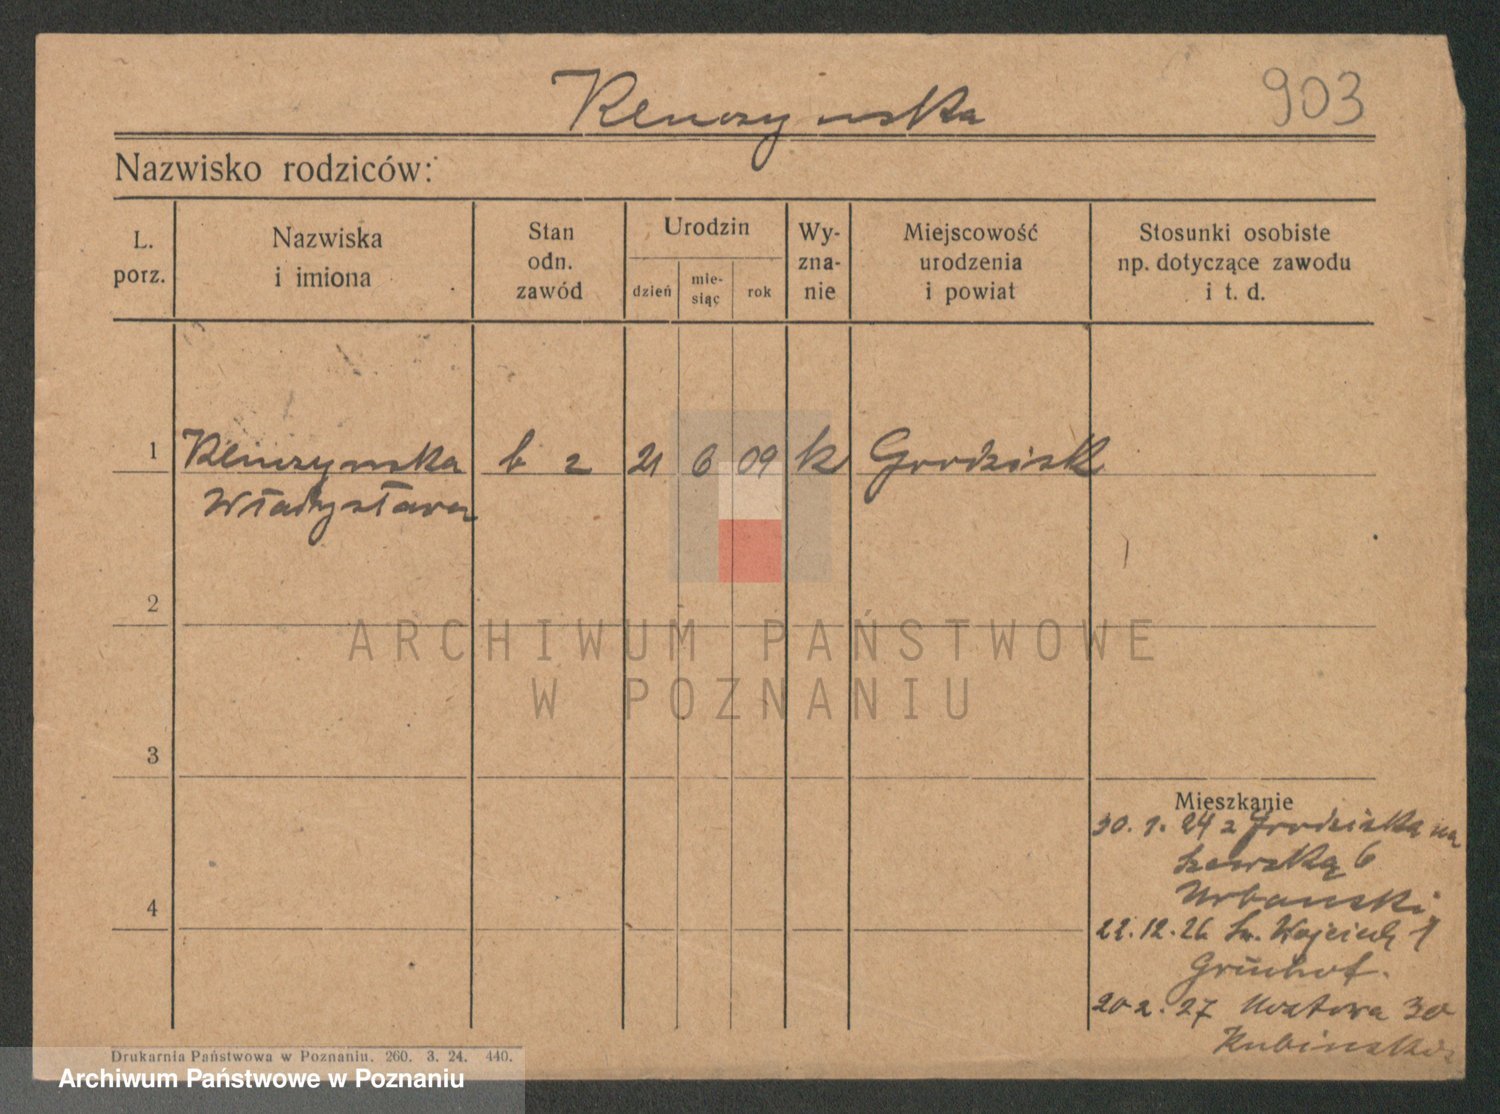 903
Kluczyńska
Nazwisko rodziców:
L. porz.
Nazwiska i imiona
Stan odn. zawód
Urodzin
dzień
mie-siąc
rok
Wy-zna-nie
Miejscowość urodzenia i powiat
Stosunki osobiste np. dotyczące zawodu i t. d.
1 b z 21 6 09 k Grodzisk
Władysława
2
ARCHIWUM PAŃSTWOWE
W POZNANIU
3
Mieszkanie
30. 1. 24 z Grodziska na
Szewską 6
Urbanski
4
22.12.26 Św. Wojciech 1
20 2. 27 30
Drukarnia Państwowa w Poznaniu. 260. 3. 24. 440.
Archiwum Państwowe w Poznaniu